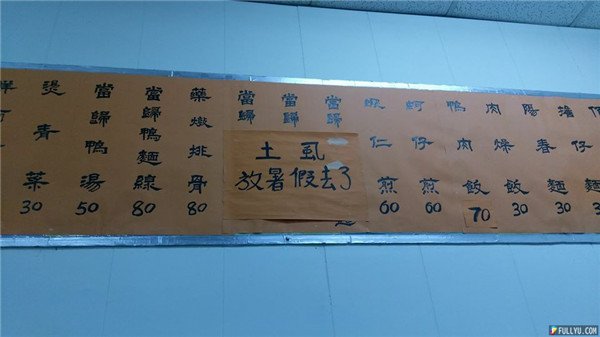 燙青菜
30
當歸鴨湯
50
當歸鴨麵線
80
藥燉排骨
80
當歸
當歸
當歸
土虱
放暑假去了
蝦仁煎
60
蚵仔煎
60
鴨肉飯
70
肉燥飯
30
陽春麵
30
擔仔麵
30
FULLYU.COM